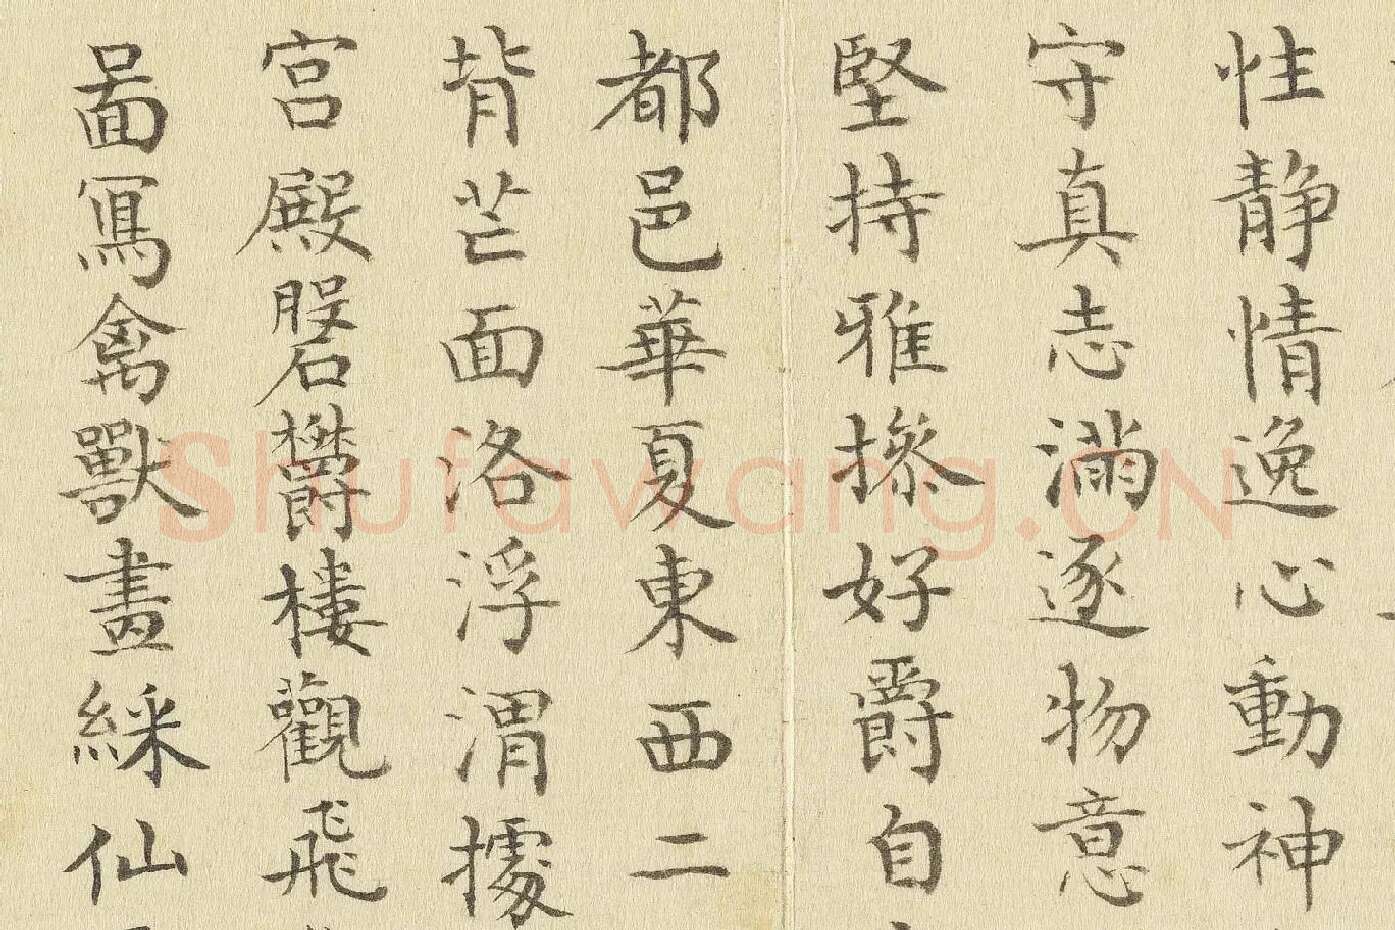 性静情逸心動神
守真志滿逐物意
堅持雅操好爵自
都邑華夏東西二
背芒面洛浮渭據
宮殿磐欝樓觀飛
啚寫禽獸畫綵仙
Shufawang.CN